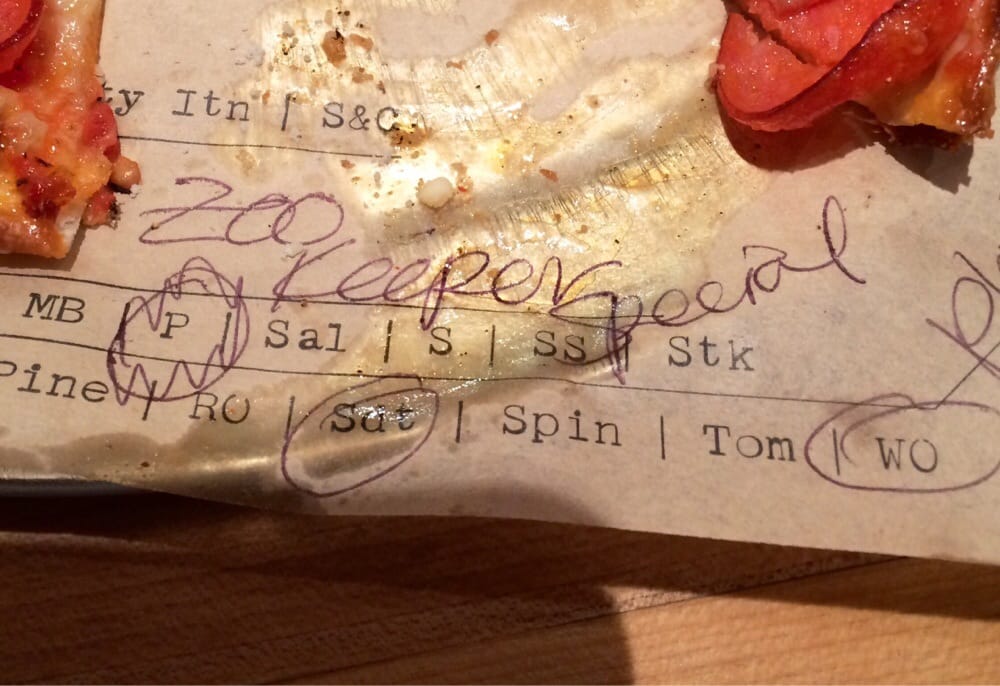 ty Itn | S&C
Zoo
Keeper Special
MB | P | Sal | S | SS | Stk
Pine | RO | Sut | Spin | Tom | WO